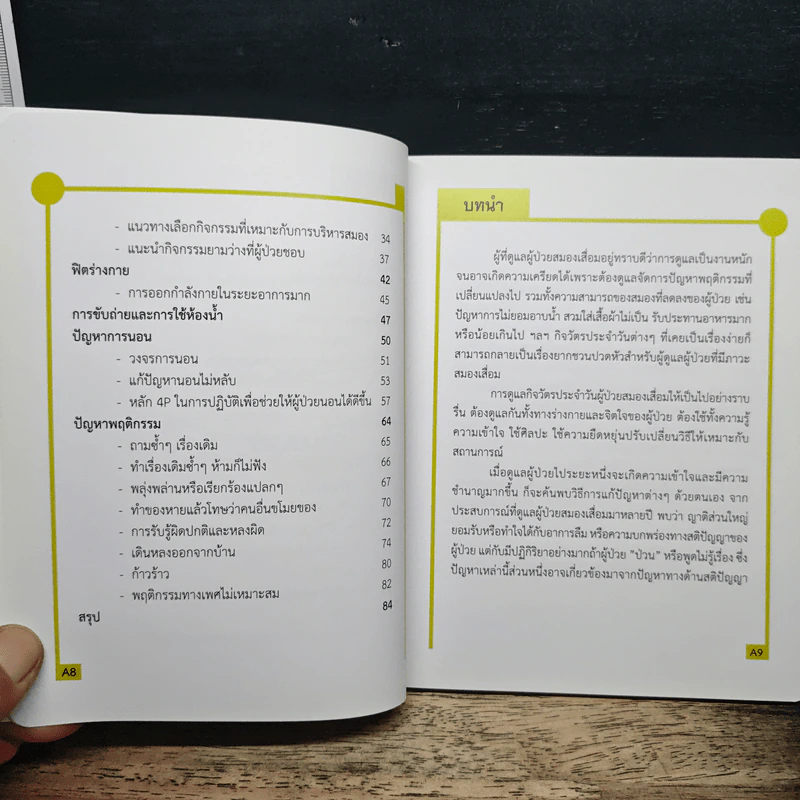 - แนวทางเลือกกิจกรรมที่เหมาะกับการบริหารสมอง 34
- แนะนำกิจกรรมยามว่างที่ผู้ป่วยชอบ 37
ฟิตร่างกาย 42
- การออกกำลังกายในระยะอาการมาก 45
การขับถ่ายและการใช้ห้องน้ำ 47
ปัญหาการนอน 50
- วงจรการนอน 51
- แก้ปัญหานอนไม่หลับ 53
- หลัก 4P ในการปฏิบัติเพื่อช่วยให้ผู้ป่วยนอนได้ดีขึ้น 57
ปัญหาพฤติกรรม 64
- ถามซ้ำๆ เรื่องเดิม 65
- ทำเรื่องเดิมซ้ำๆ ห้ามก็ไม่ฟัง 66
- พลุ่งพล่านหรือเรียกร้องแปลกๆ 67
- ทำของหายแล้วโทษว่าคนอื่นขโมยของ 70
- การรับรู้ผิดปกติและหลงผิด 72
- เดินหลงออกจากบ้าน 74
- ก้าวร้าว 80
- พฤติกรรมทางเพศไม่เหมาะสม 82
สรุป 84
A8
บทนำ
ผู้ที่ดูแลผู้ป่วยสมองเสื่อมอยู่ทราบดีว่าการดูแลเป็นงานหนัก
จนอาจเกิดความเครียดได้เพราะต้องดูแลจัดการปัญหาพฤติกรรมที่
เปลี่ยนแปลงไป รวมทั้งความสามารถของสมองที่ลดลงของผู้ป่วย เช่น
ปัญหาการไม่ยอมอาบน้ำ สวมใส่เสื้อผ้าไม่เป็น รับประทานอาหารมาก
หรือน้อยเกินไป ฯลฯ กิจวัตรประจำวันต่างๆ ที่เคยเป็นเรื่องง่ายก็
สามารถกลายเป็นเรื่องยากชวนปวดหัวสำหรับผู้ดูแลผู้ป่วยที่มีภาวะ
สมองเสื่อม
การดูแลกิจวัตรประจำวันผู้ป่วยสมองเสื่อมให้เป็นไปอย่างราบ
รื่น ต้องดูแลกันทั้งทางร่างกายและจิตใจของผู้ป่วย ต้องใช้ทั้งความรู้
ความเข้าใจ ใช้ศิลปะ ใช้ความยืดหยุ่นปรับเปลี่ยนวิธีให้เหมาะกับ
สถานการณ์
เมื่อดูแลผู้ป่วยไประยะหนึ่งจะเกิดความเข้าใจและมีความ
ชำนาญมากขึ้น ก็จะค้นพบวิธีการแก้ปัญหาต่างๆ ด้วยตนเอง จาก
ประสบการณ์ที่ดูแลผู้ป่วยสมองเสื่อมมาหลายปี พบว่า ญาติส่วนใหญ่
ยอมรับหรือทำใจได้กับอาการลืม หรือความบกพร่องทางสติปัญญาของ
ผู้ป่วย แต่กับมีปฏิกิริยาอย่างมากถ้าผู้ป่วย "ป่วน" หรือพูดไม่รู้เรื่อง ซึ่ง
ปัญหาเหล่านี้ส่วนหนึ่งอาจเกี่ยวข้องมาจากปัญหาทางด้านสติปัญญา
A9